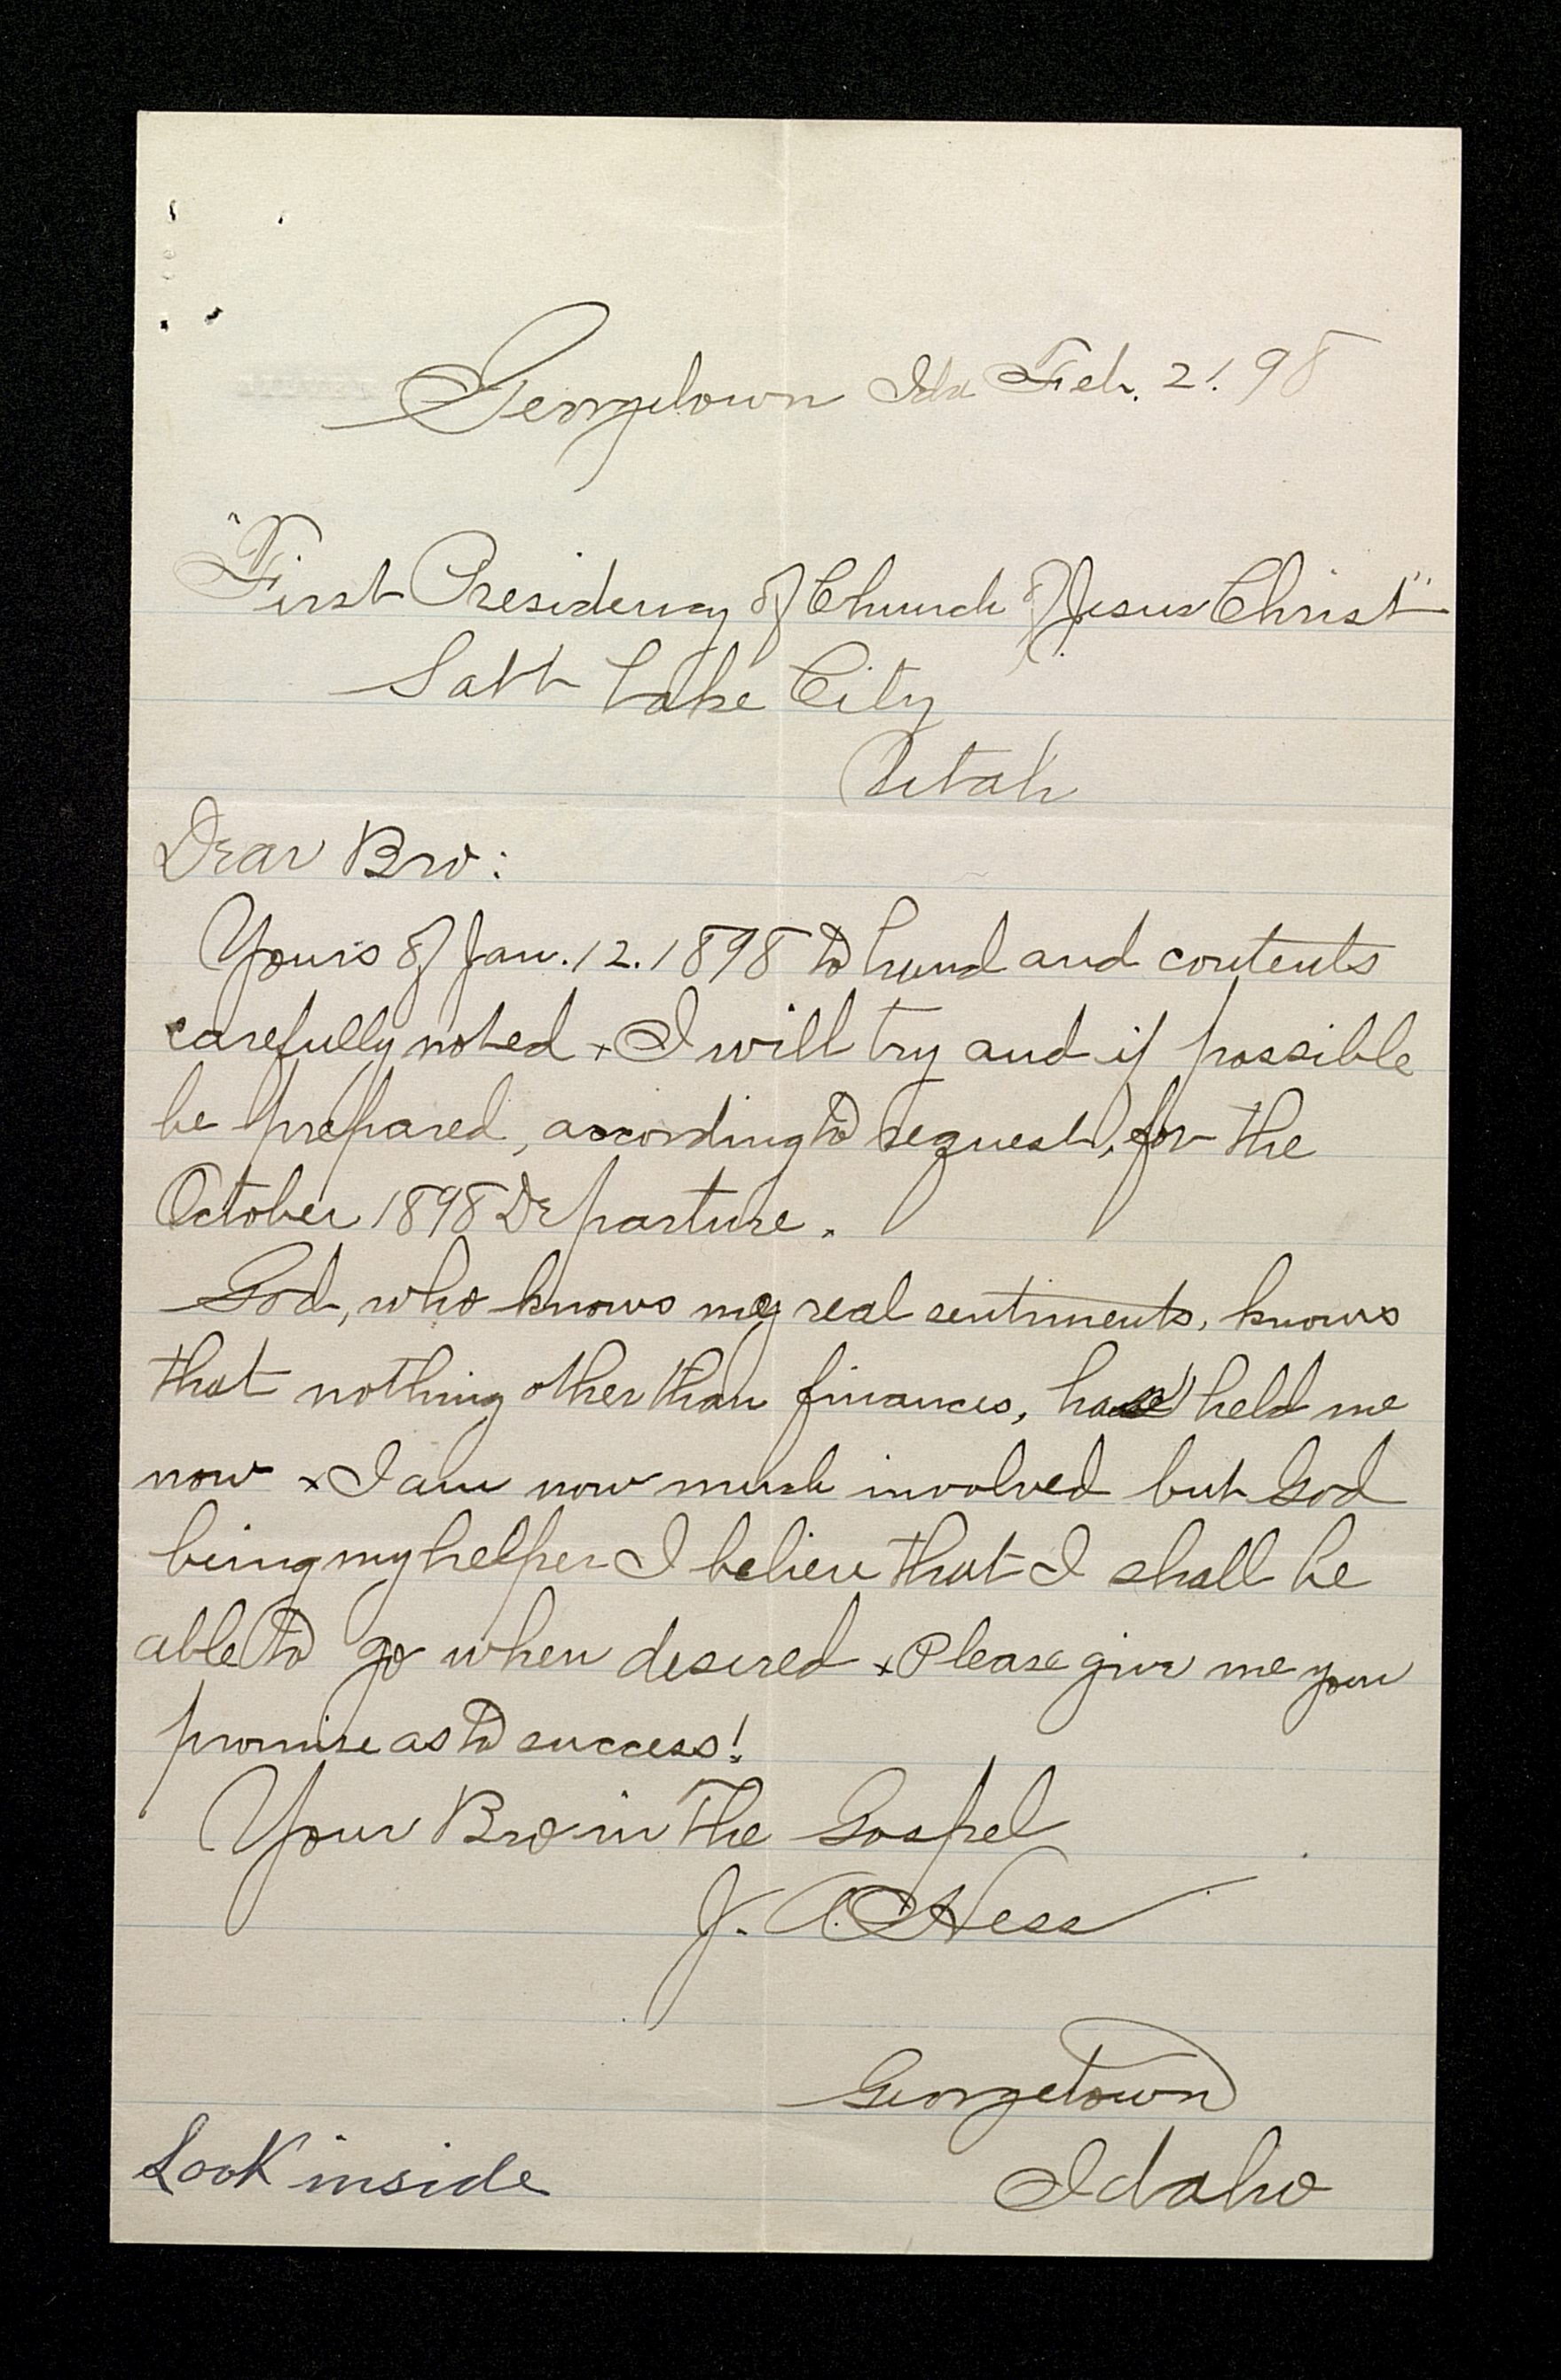 Georgetown Ida Feb. 21. 98
"First Presidency of Church of Jesus Christ"
Salt Lake City
Utah
Dear Bro:
Yours of Jan. 12. 1898 to hand and contents
carefully noted x I will try and if possible
be prepared, according to request, for the
October 1898 Departure.
God, who knows my real sentiments, knows
that nothing other than finances, has held me
now x I am now much involved but God
being my helper I believe that I shall be
able to go when desired x Please give me your
promise as to success!
Your Bro in the Gospel
J. A. Hess
Georgetown
Look inside
Idaho